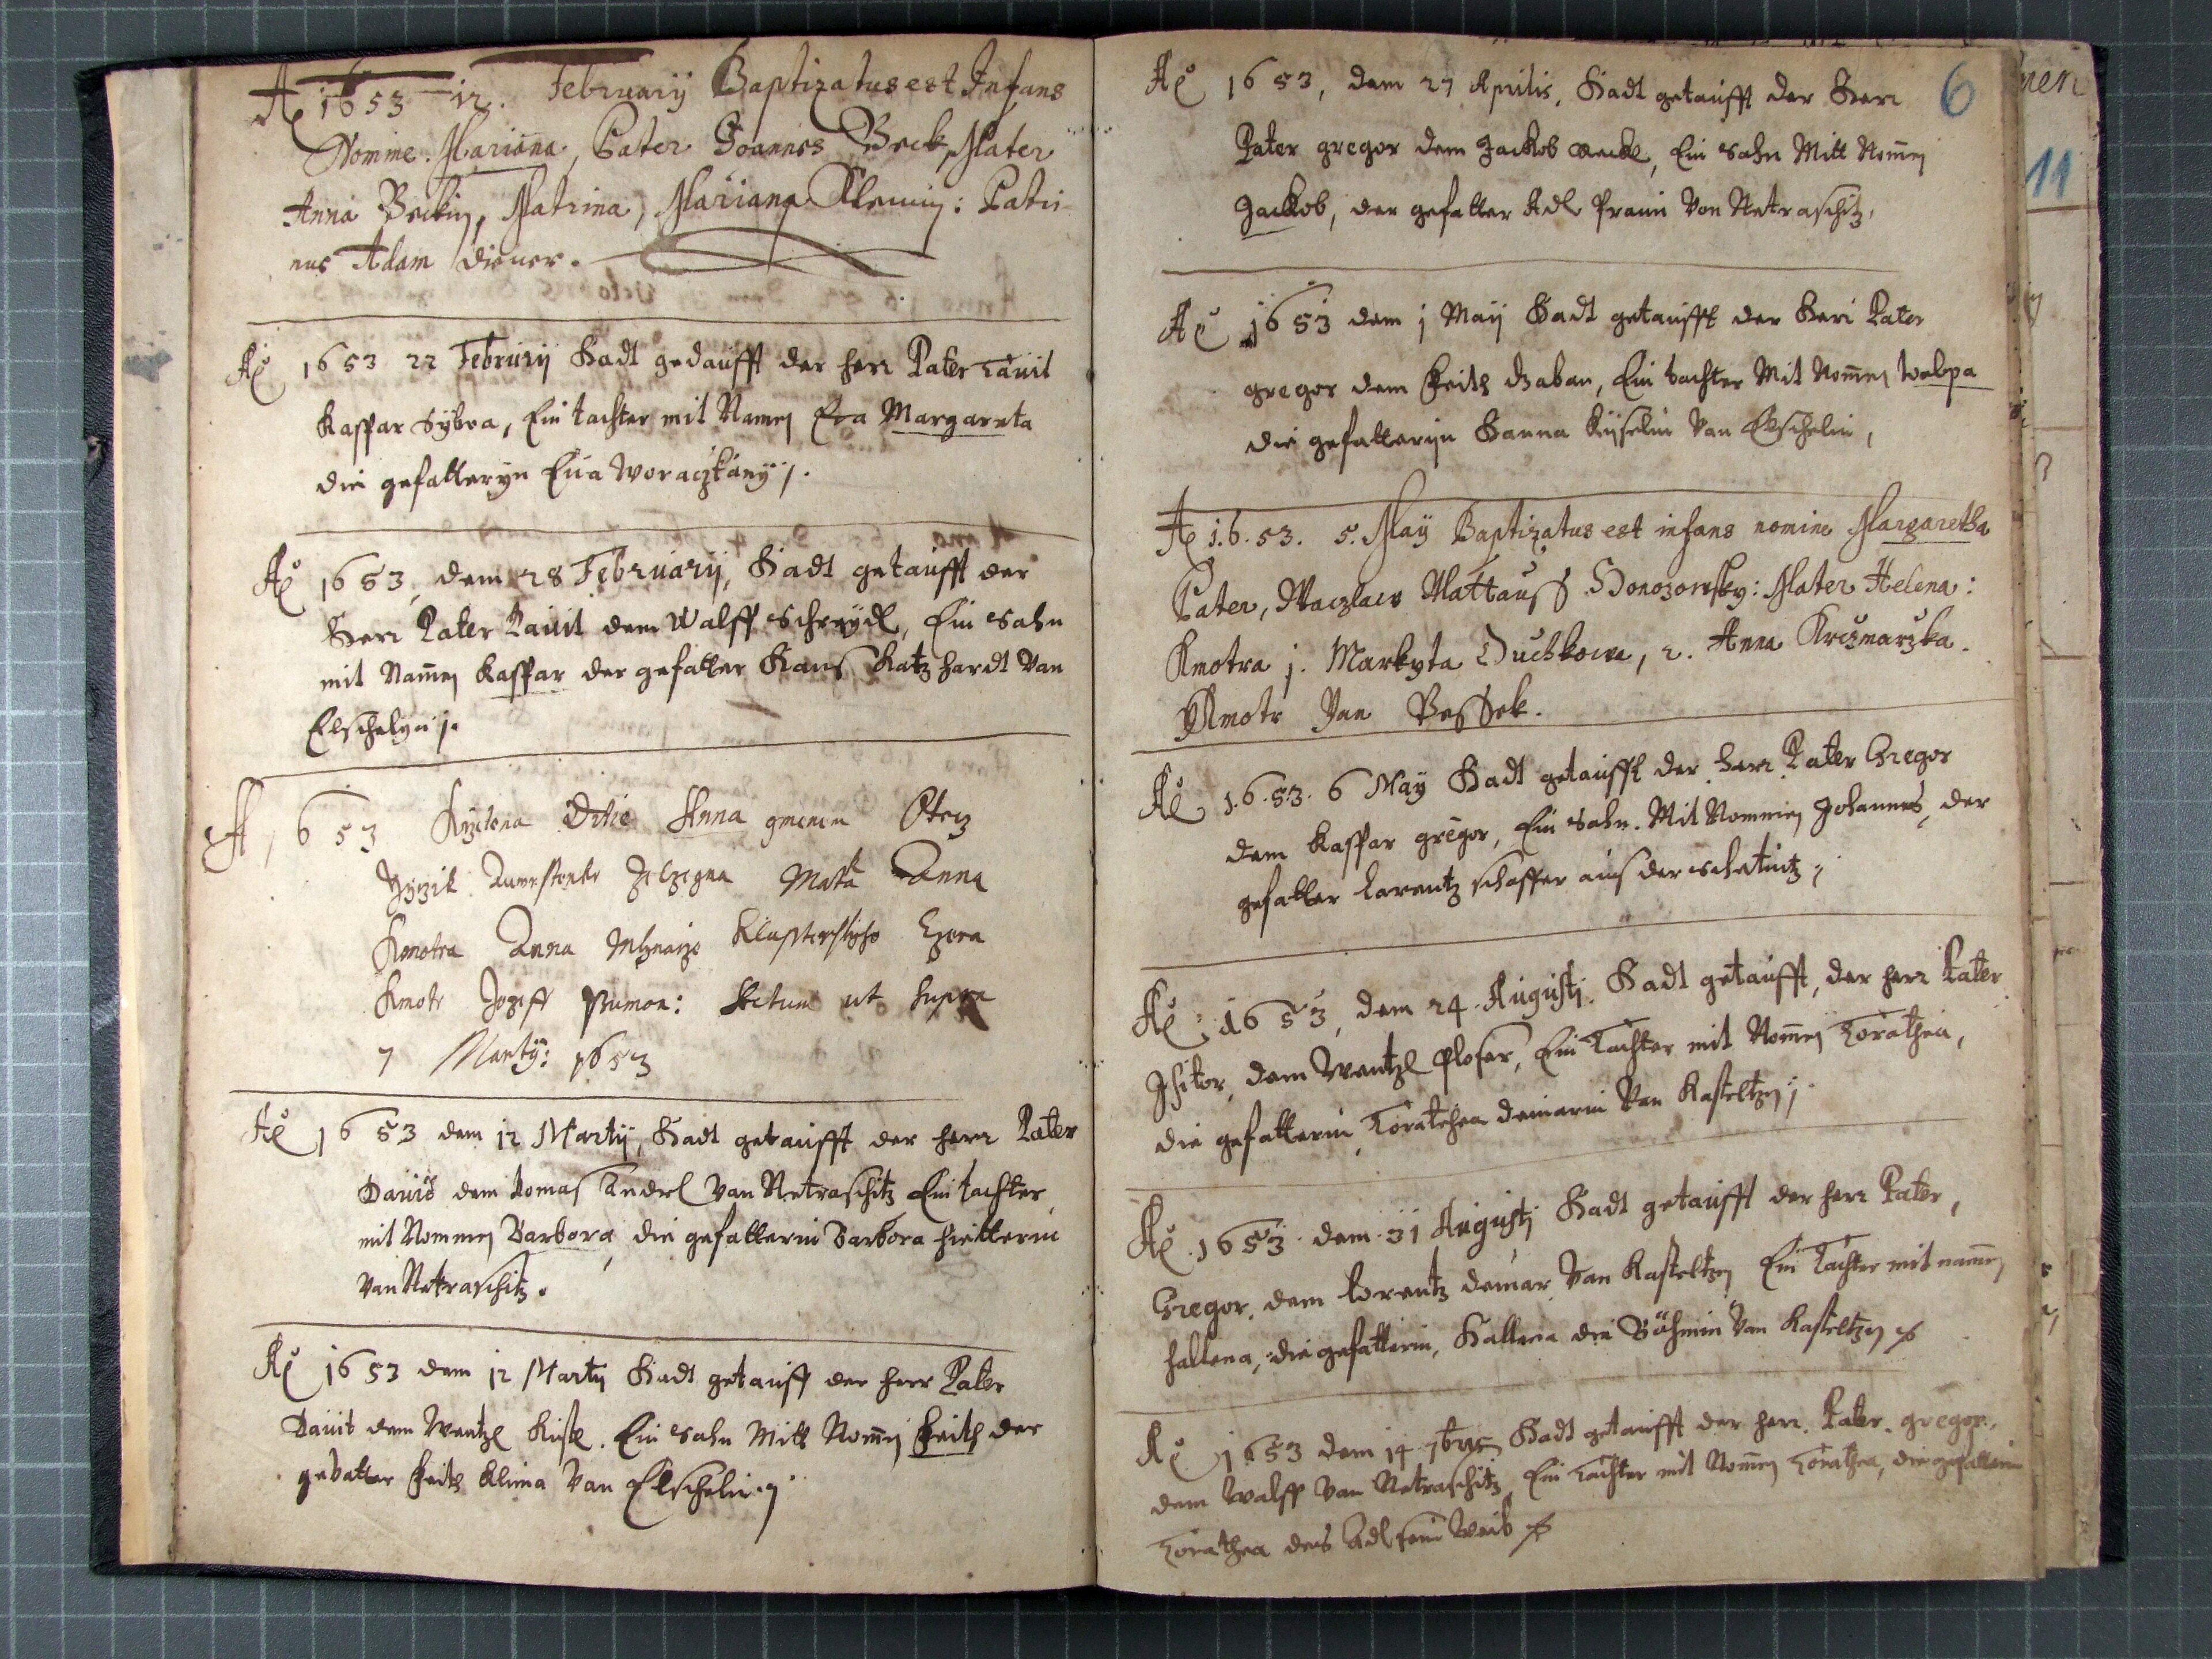 Ao 1653 12. February Baptizatus est Infans
Nomine Mariana, Pater Joannes Beck, Mater
Anna Beckin, Matrina, Mariana: Patri
nus Adam diener.
Ao 1653 22 Februrij Hadt gedaufft der herr Pater Tauit
Kasspar Sybra, Ein tachter mit Namen Eva Margareta
die gefatteryn Eua Woraczkany j.
Ao 1653, dem 28 February, Hadt getaufft der
Herr Pater Dauit dem Walff Schreydl, Ein Sohn
mit Namen Kasspar der gefatter Hanß Katzhardt Van
Elschelyn j.
A 1653 Krztena Ditie Anna gmenem Otecz
Mattka Anna
Kmotra Anna Mlynarze
Kmotr Jozeff: Actum ut supra
7 Martij: 1653
Ao 1653 dem 12 Martij, Hadt getaufft der herr Pater
Dauid dem Tomas Andrel Van Netraschitz Ein tachter
mit Nommen Barbora, die gefatterin Barbora
Van Netraschitz.
Ao 1653 dem 12 Martij Hadt getauff der herr Pater
Dauit dem Wentzl. Ein Sohn Mitt Nomen Feith der
gevatter Feith Klima Van Elschelin j
6
Ao 1653, dem 27 Aprilis, Hadt getaufft der Herr
Pater gregor dem Jackob, Ein Sohn Mitt Nomen
Jackob, der gefatter Adl Praun Von Netraschitz,
Ao 1653 dem j Maij Hadt getaufft der Herr Pater
gregor dem Feith, Ein tachter Mit Nomen Walpa
die gefatteryn Hanna Kyselin Van Elschelin,
Ao 1.6.53. 5. May Baptizatus est infans nomine Margaretha
Pater, Waczlaw Mattauß: Mater Helena:
Kmotra j. Markyta Duchkowa, 2. Anna Krczmarzka.
Kmotr Jan Pessek.
Ao 1.6.53. 6 May Hadt getaufft der herr Pater Gregor
dem Kasspar gregor, Ein Sohn. Mit Nommen Johannes, der
gefatter Larentz schaffer auß der
Ao 1653, dem 24 Augustj. Hadt getaufft, der herr Pater
Jsitor, dem Wentzl Ploser, Ein Tachter mit Nomen Torathea,
die gefatterin Torathea demarin Van Kasteltzen j
Ao 1653 dem 31 Augustj Hadt getaufft der herr Pater,
Gregor. dem Lorentz demar Van Kasteltzen Ein Tachter mit namen
hallena, die gefatterin, Hallena die Böhmin Van Kasteltzen
Ao 1653 dem 14 7bris Hadt getaufft der herr Pater gregor,
dem Walff Van Netraschitz, Ein Tachter mit Nomen Torathea, die gefatterin
Torathea des Adl sein Weib
nen
11